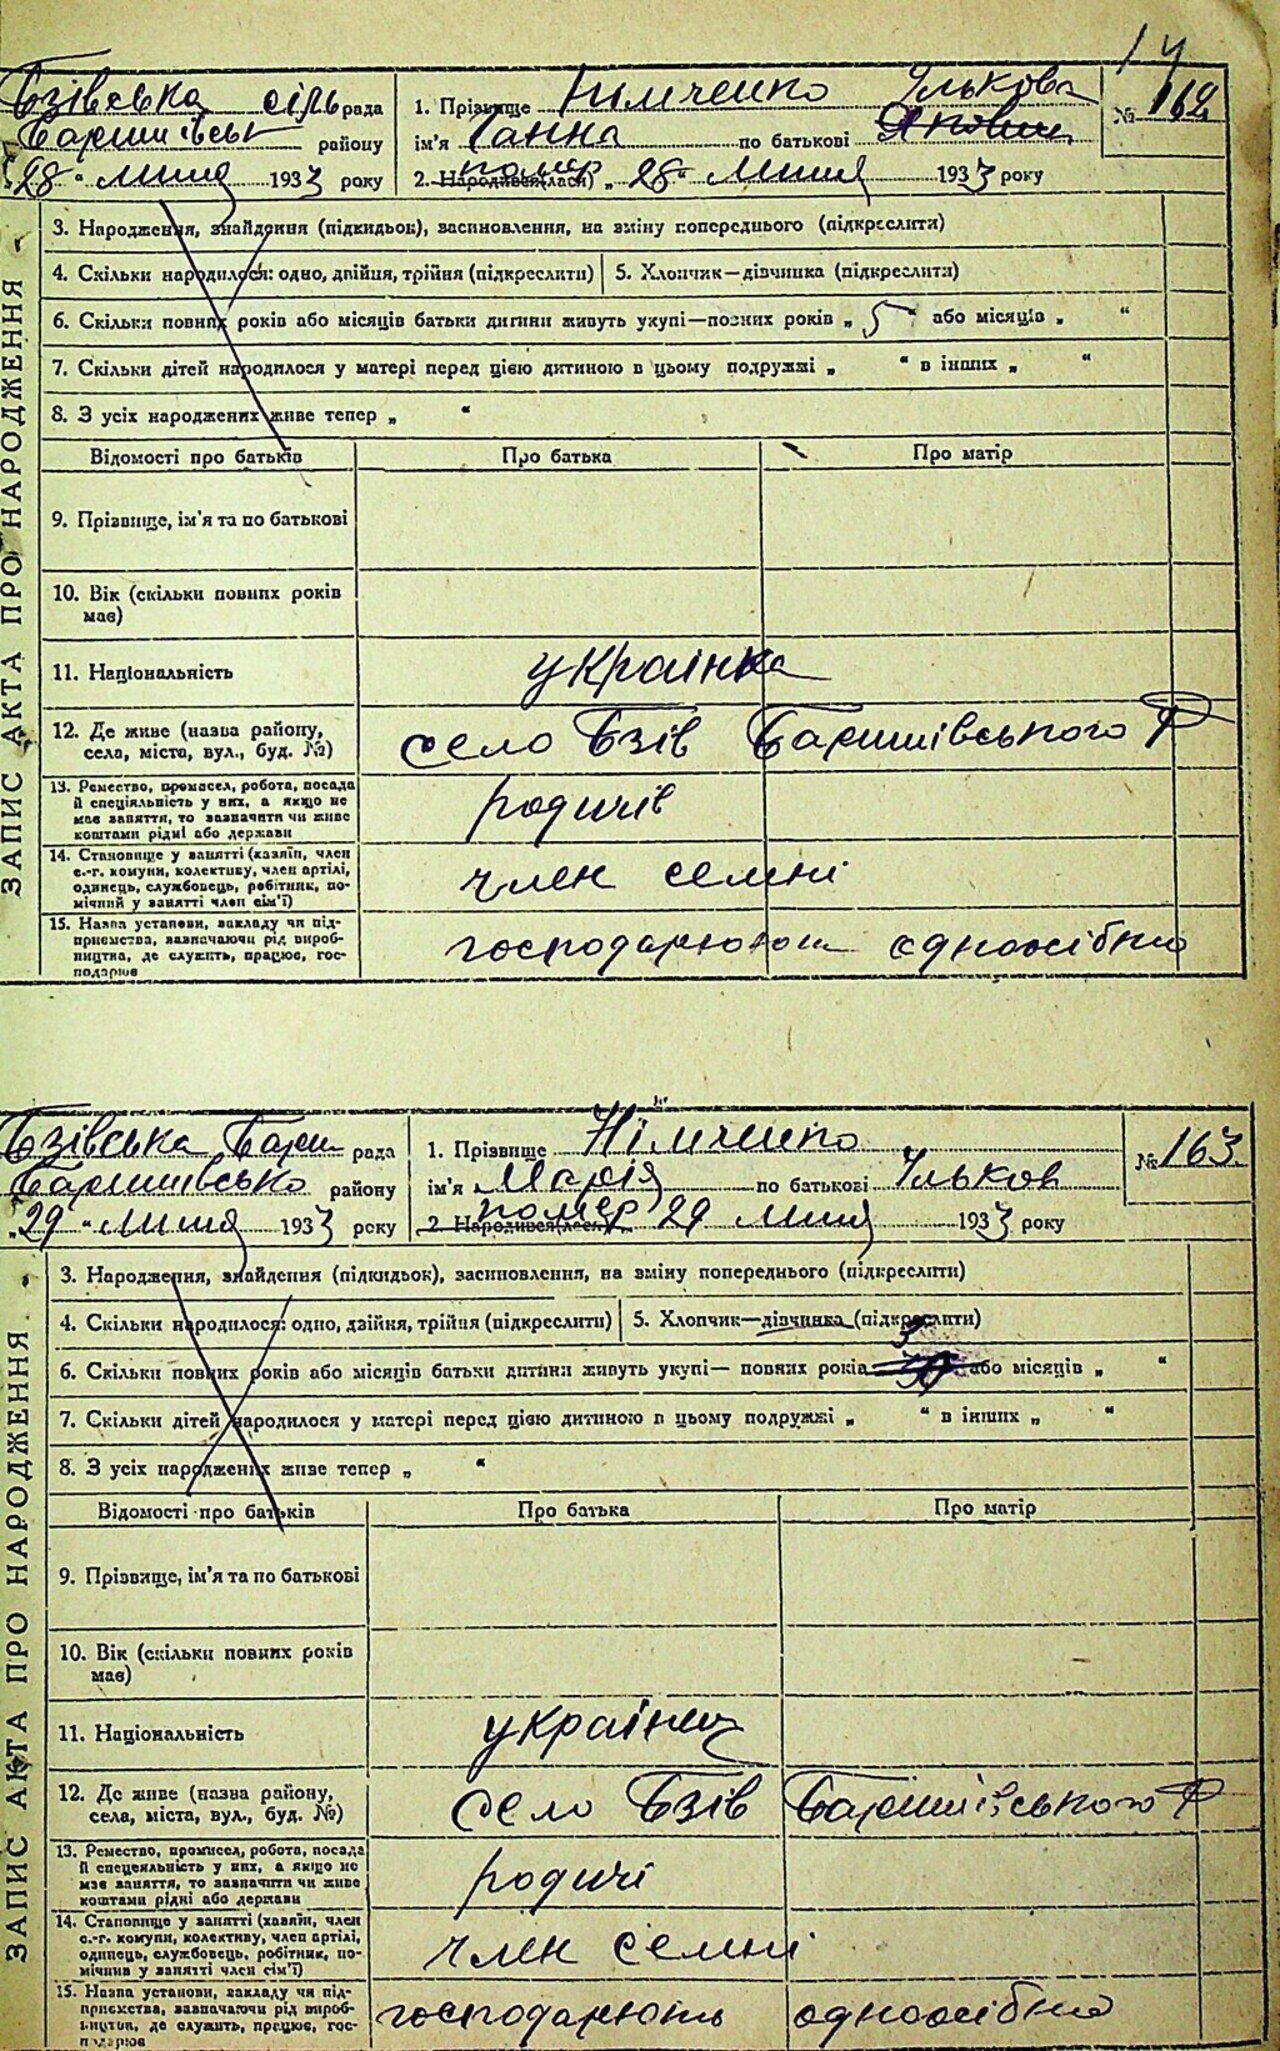 14
Бзівська сіль рада
Баришівськ району
"28" липня 1933 року
1. Прізвище Німченко Ількова
ім'я Ганна по батькові
2. Народився(лася) помер „28" липня 1933 року
№ 162
ЗАПИС АКТА ПРО НАРОДЖЕННЯ
3. Народження, знайдення (підкидьок), засиновлення, на зміну попереднього (підкреслити)
4. Скільки народилося: одно, двійня, трійня (підкреслити) 5. Хлопчик—дівчинка (підкреслити)
6. Скільки повних років або місяців батьки дитини живуть укупі—повних років „ 5 " або місяців „ "
7. Скільки дітей народилося у матері перед цією дитиною в цьому подружжі „ " в інших „ "
8. З усіх народжених живе тепер „ "
Відомості про батьків Про батька Про матір
9. Прізвище, ім'я та по батькові
10. Вік (скільки повних років
має)
11. Національність українка
12. Де живе (назва району,
села, міста, вул., буд. №) село Бзів Баришівського р
13. Ремество, промисел, робота, посада
й спеціяльність у них, а якщо не
має заняття, то зазначити чи живе
коштами рідні або держави
родичів
14. Становище у занятті (хазяїн, член
с.-г. комуни, колективу, член артілі,
одинець, службовець, робітник, по-
мічний у занятті член сім'ї)
член семні
15. Назва установи, закладу чи під-
приємства, зазначаючи рід вироб-
ництва, де служить, працює, гос-
подарює
господарюють одноосібно
Бзівська Бари рада
Баришівсько району
„29" липня 1933 року
1. Прізвище Німченко
ім'я Марія по батькові Ільков
2. Народився(лася) помер 29 липня 1933 року
№ 163
ЗАПИС АКТА ПРО НАРОДЖЕННЯ
3. Народження, знайдення (підкидьок), засиновлення, на зміну попереднього (підкреслити)
4. Скільки народилося: одно, двійня, трійня (підкреслити) 5. Хлопчик—дівчинка (підкреслити)
6. Скільки повних років або місяців батьки дитини живуть укупі— повних років 3 або місяців „ "
7. Скільки дітей народилося у матері перед цією дитиною в цьому подружжі „ " в інших „ "
8. З усіх народжених живе тепер „ "
Відомості про батьків Про батька Про матір
9. Прізвище, ім'я та по батькові
10. Вік (скільки повних років
має)
11. Національність українц
12. Де живе (назва району,
села, міста, вул., буд. №) село Бзів Баришівського р
13. Ремество, промисел, робота, посада
й спеціяльність у них, а якщо не
має заняття, то зазначити чи живе
коштами рідні або держави
родичі
14. Становище у занятті (хазяїн, член
с.-г. комуни, колективу, член артілі,
одинець, службовець, робітник, по-
мічний у занятті член сім'ї)
член семні
15. Назва установи, закладу чи під-
приємства, зазначаючи рід вироб-
ництва, де служить, працює, гос-
подарює
господарюють одноосібно